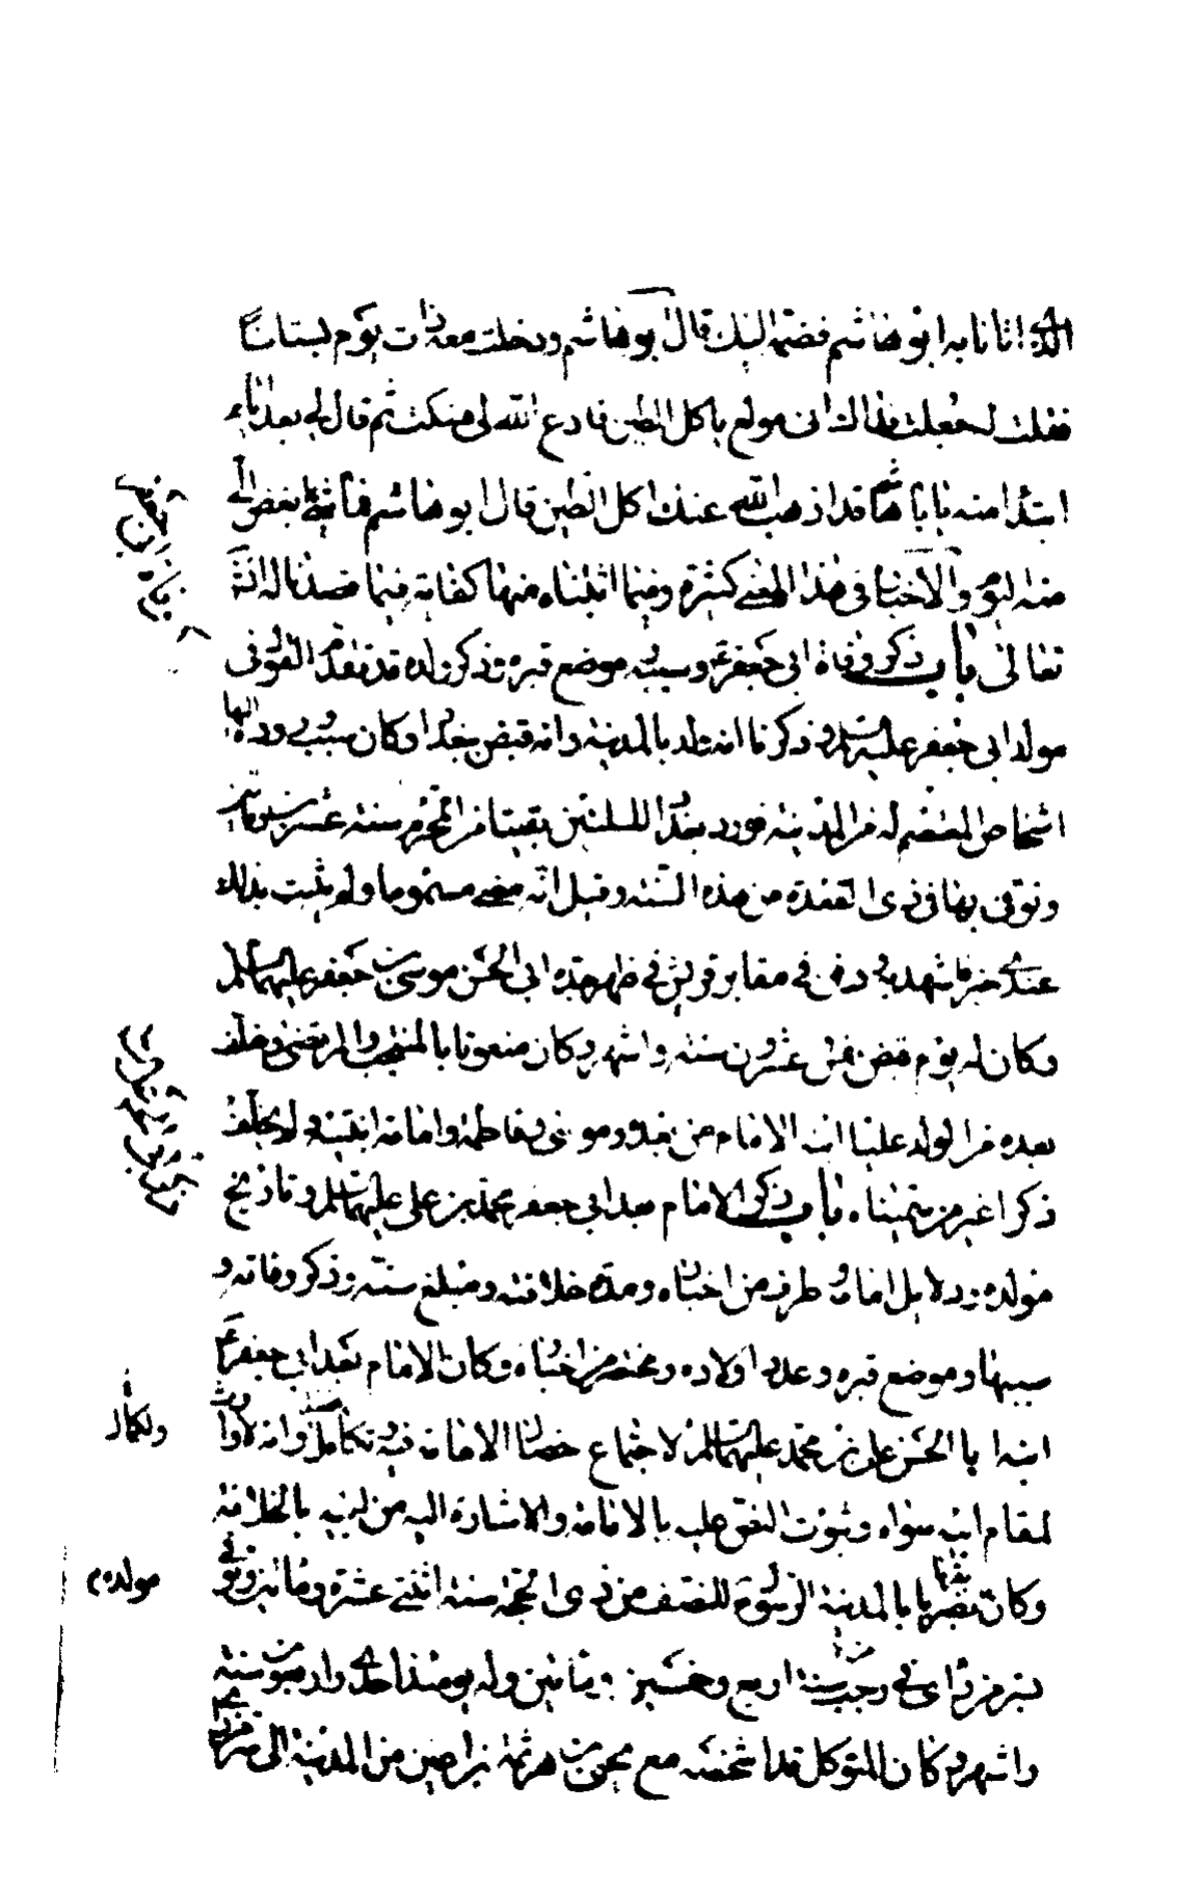 اتانا به ابو هاشم فضمه اليك قال ابو هاشم ودخلت معه ذات يوم بستانا
فقلت له جعلت فداك انى مولع باكل الطين فادع الله لى فسكت ثم قال لى بعد ايام
ابتداء منه يا با هاشم قد اذهب الله عنك اكل الطين قال ابو هاشم فما شئ ابغض الى
منه اليوم والاخبار فى هذا المعنى كثيرة وفيما اثبتناه منها كفاية فيما قصدنا له انشآء
تعالى باب ذكر وفاة ابى جعفر ع وسببه وموضع قبره وذكر ولده قد تقدم القول فى
مولد ابى جعفر عليه السلم وذكرنا انه ولد بالمدينة وانه قبض ببغداد وكان سبب وروده اليها
اشخاص المعتصم له من المدينة فورد بغداد لليلتين بقيتا من المحرم سنة عشرين وماتين
وتوفى بها فى ذى القعدة من هذه السنة وقيل انه مضى مسموما ولم يثبت بذلك
عندى خبر فاشهد به ودفن فى مقابر قريش فى ظهر جده ابى الحسن موسى بن جعفر عليهما السلم
وكان له يوم قبض خمس وعشرون سنة واشهر وكان منعوتا بالمنتجب والمرتضى وخلف
بعده من الولد عليا ابنه الامام من بعده وموسى وفاطمة وامامة ابنتيه ولم يخلف
ذكرا غير من سميناه باب ذكر الامام بعد ابى جعفر محمد بن على عليهما السلم وتاريخ
مولده ودلايل امامته وطرف من اخباره ومدة خلافته ومبلغ سنه وذكر وفاته و
سببها وموضع قبره وعدد اولاده ومختصر من اخباره وكان الامام بعد ابى جعفر ع
ابنه ابا الحسن على بن محمد عليهما السلم لاجتماع خصال الامامة فيه وتكامل فضله وانه لا وارث
لمقام ابيه سواه وثبوت النص عليه بالامامة والاشارة اليه من ابيه بالخلافة
وكان بصريا بالمدينة الرسول للنصف من ذى الحجة سنة اثنتى عشرة وماتين وتوفى
بسر من راى فى رجب سنة اربع وخمسين وماتين وله يومئذ احدى واربعون سنة
واشهر وكان المتوكل قد اشخصه مع يحيى بن هرثمة بن اعين من المدينة الى سر من راى
مولده م